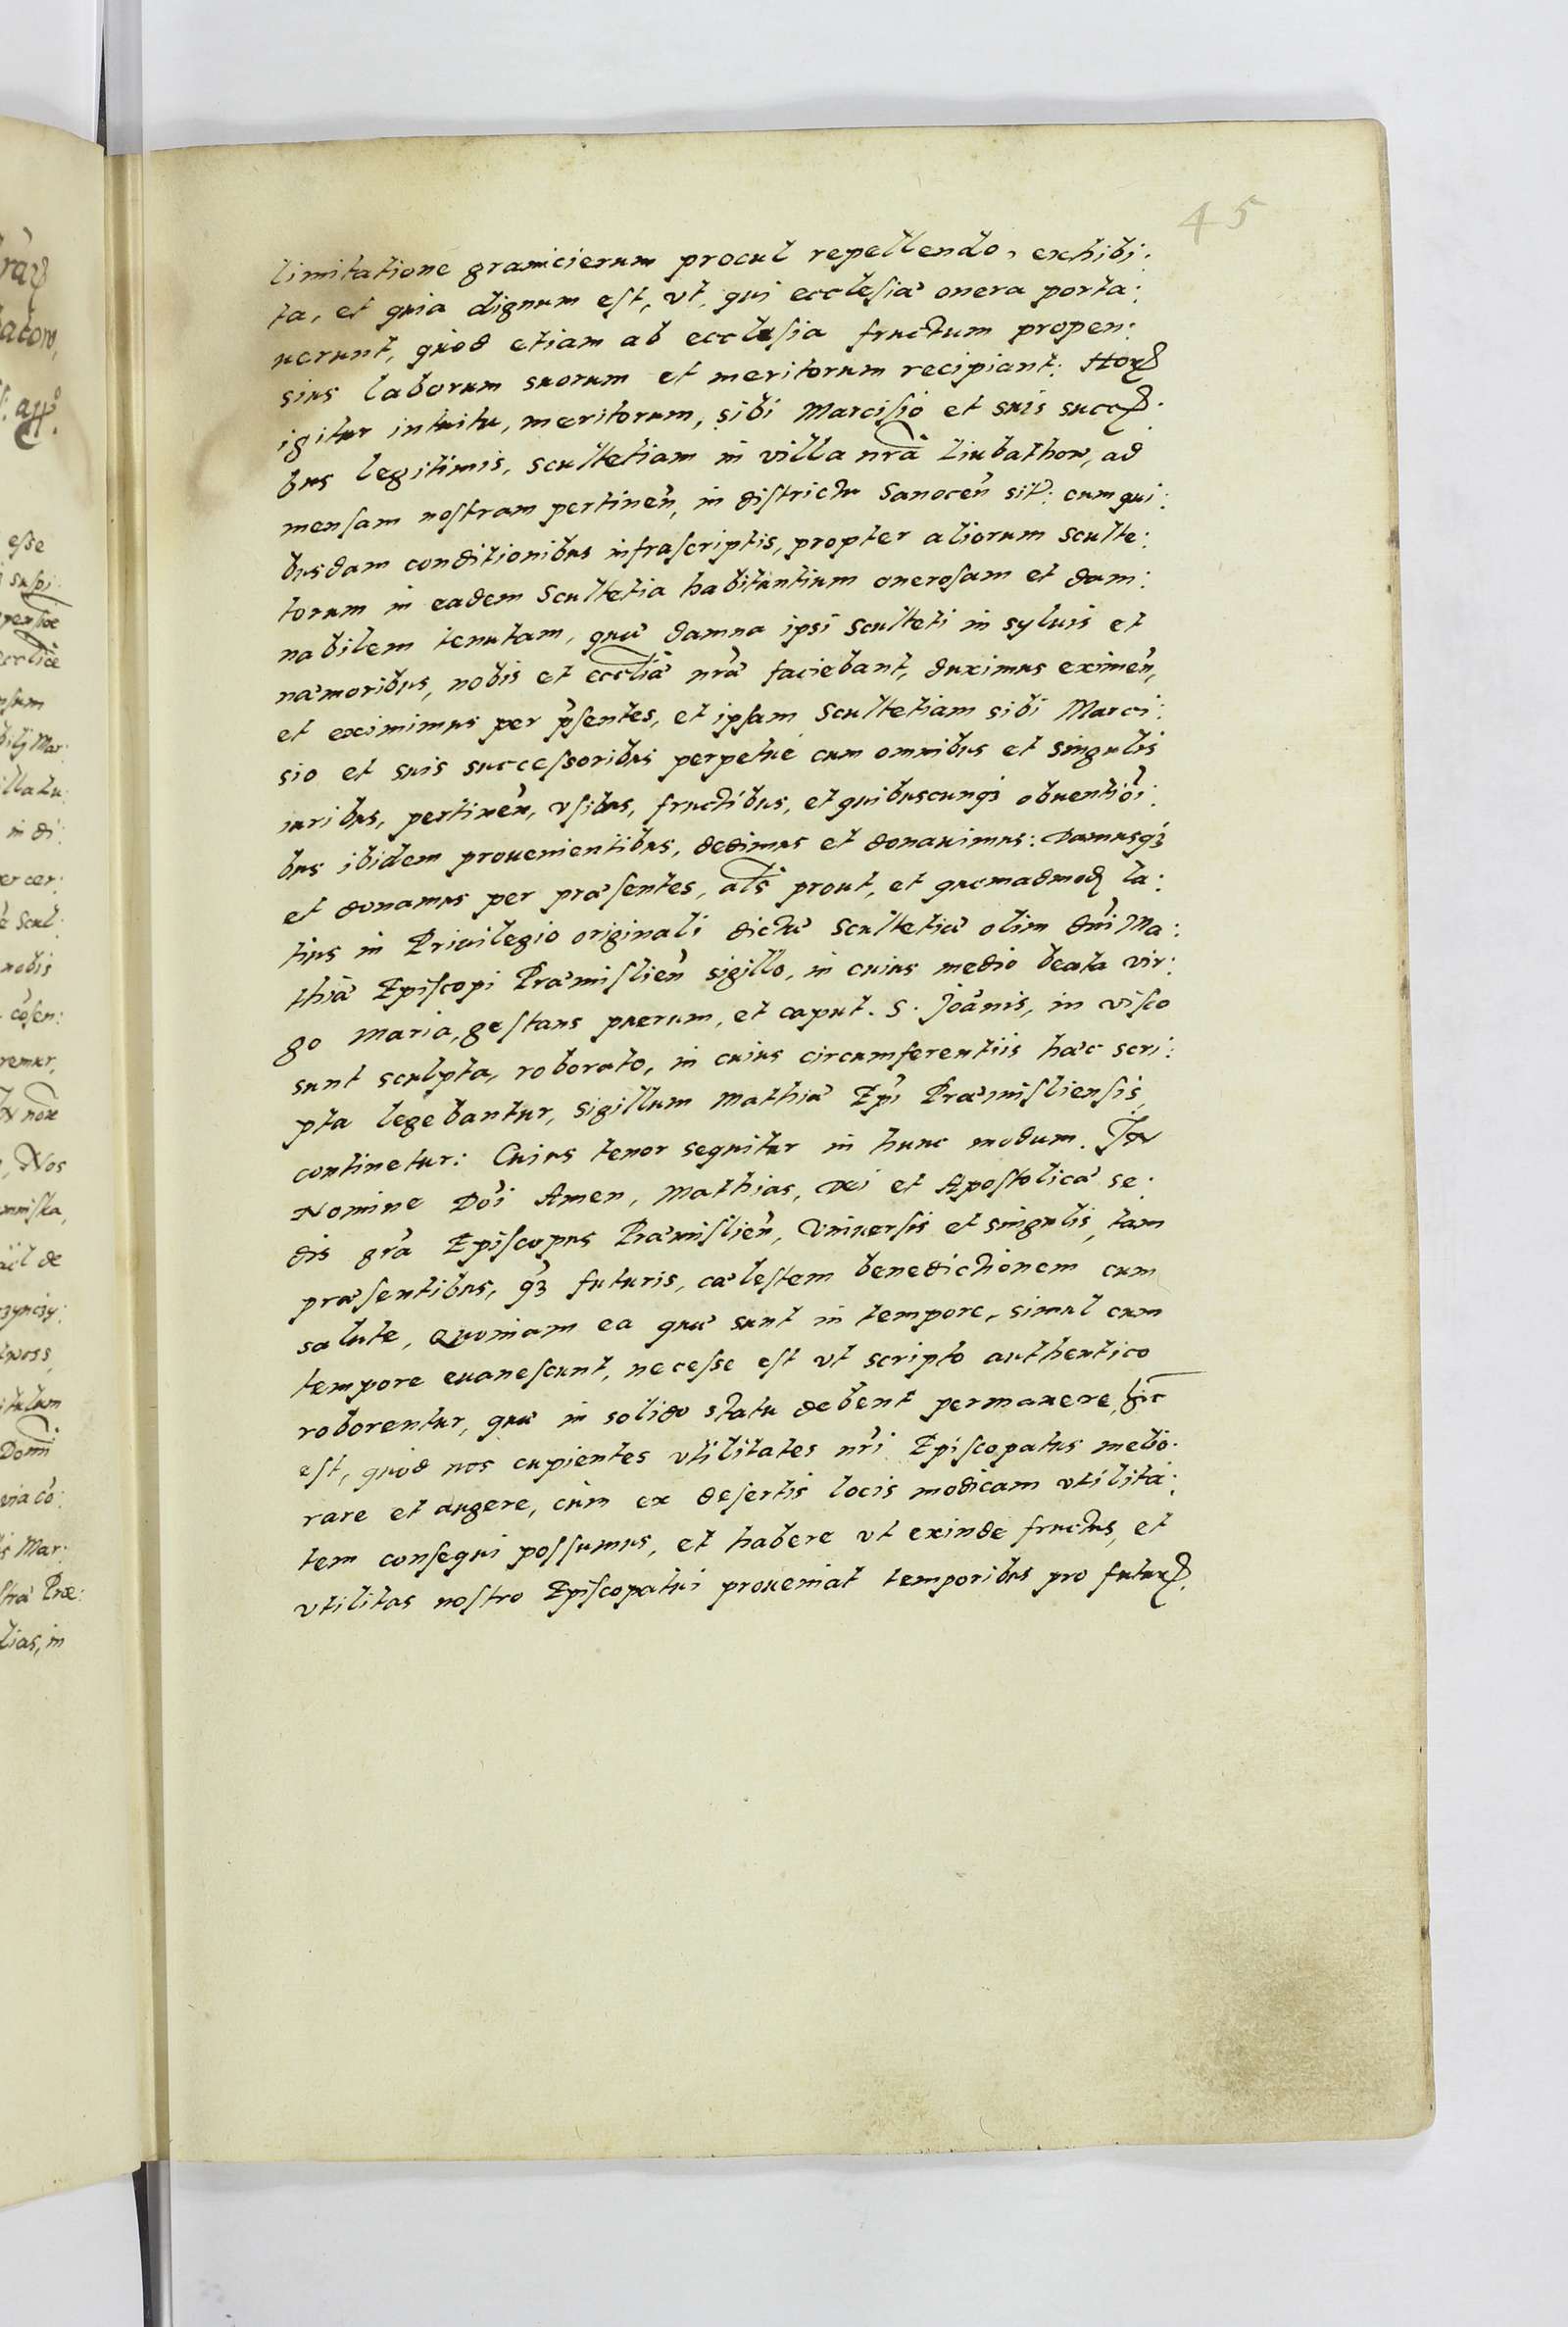 45
limitatione granicierum procul repellendo, exhibi:
ta, et quia dignum est, vt, qui ecclesiæ onera porta:
uerunt, quòd etiam ab ecclesia fructum propen:
sius laborum suorum et meritorum recipiant: Horꝝ
igitur intuitu, meritorum, sibi Marcisio et suis succꝭ:
bus legitimis, scultetiam in villa nrã Liubathow, ad
mensam nostram pertineñ, in districtu Sanoceñ sitꝭ: cum qui:
busdam conditionibus infrascriptis, propter aliorum sculte:
torum in eadem Scultetia habitantium onerosam et dam:
nabilem tenutam, quæ damna ipsi sculteti in syluis et
næmoribus, nobis et eccliæ nræ faciebant, duximus eximeñ,
et eximimus per p̃sentes, et ipsam Scultetiam sibi Marci:
sio et suis successoribus perpetuè cum omnibus et singulis
iuribus, pertineñ, vsibus, fructibus, et quibuscunqꝫ obuentiõi:
bus ibidem prouenientibus, dedimus et donauimus: Damusqꝫ
et donamus per præsentes, als̃ prout, et quemadmodꝭ la:
tius in Priuilegio originali dictæ Scultetiæ olim dñi Ma:
thiæ Episcopi Præmislieñ sigillo, in cuius medio beata vir:
go Maria, gestans puerum, et caput. S. Joãnis, in disco
sunt sculpta, roborato, in cuius circumferentiis hæc scri:
pta legebantur, sigillum Mathiæ Epĩ Præmisliensis,
continetur: Cuius tenor sequitur in hunc modum. IN
Nomine Dõi Amen, Mathias, Dei et Apostolicæ se:
dis grã Episcopus Præmislieñ, Vniuersis et singulis, tam
præsentibus, qꝫ futuris, cælestem benedictionem cum
salute, Quoniam ea quæ sunt in tempore, simul cum
tempore euanescunt, necesse est vt scripto authentico
roborentur, quæ in solido statu debent permanere, hic̃
est, quòd nos cupientes vtilitates nr̃i Episcopatus melio:
rare et augere, cùm ex desertis locis modicam vtilita:
tem consequi possumus, et habere vt exinde fructus, et
vtilitas nostro Episcopatui proueniat temporibus pro futurꝭ.